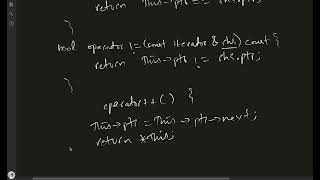 return This->ptr == rhs.ptr;
}
bool operator !=(const iterator & rhs) const {
return This->ptr != rhs.ptr;
}
operator++() {
This->ptr = This->ptr->next;
return *This;